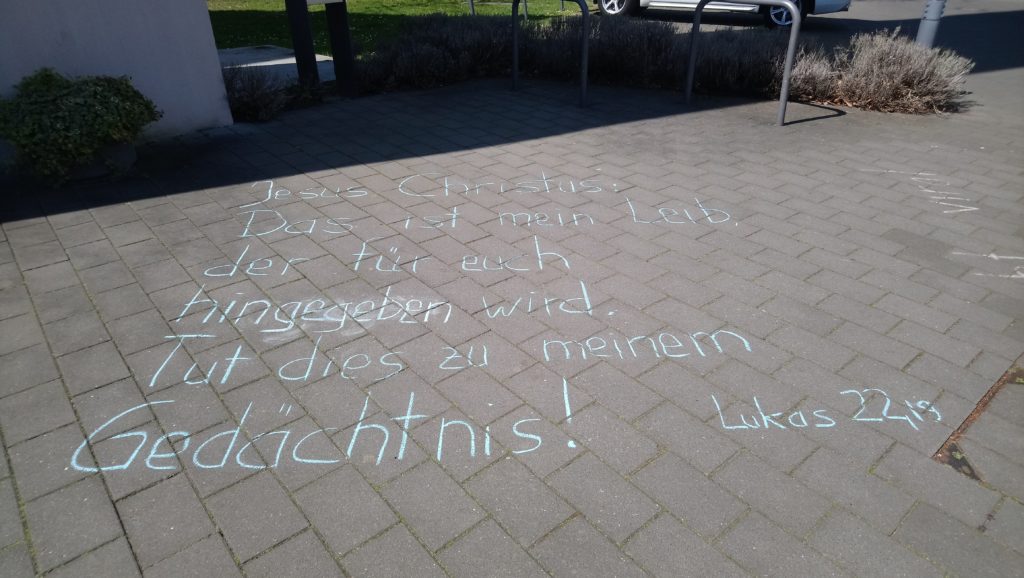 Jesus Christus:
Das ist mein Leib,
der für euch
hingegeben wird.
Tut dies zu meinem
Gedächtnis!
Lukas 22,19